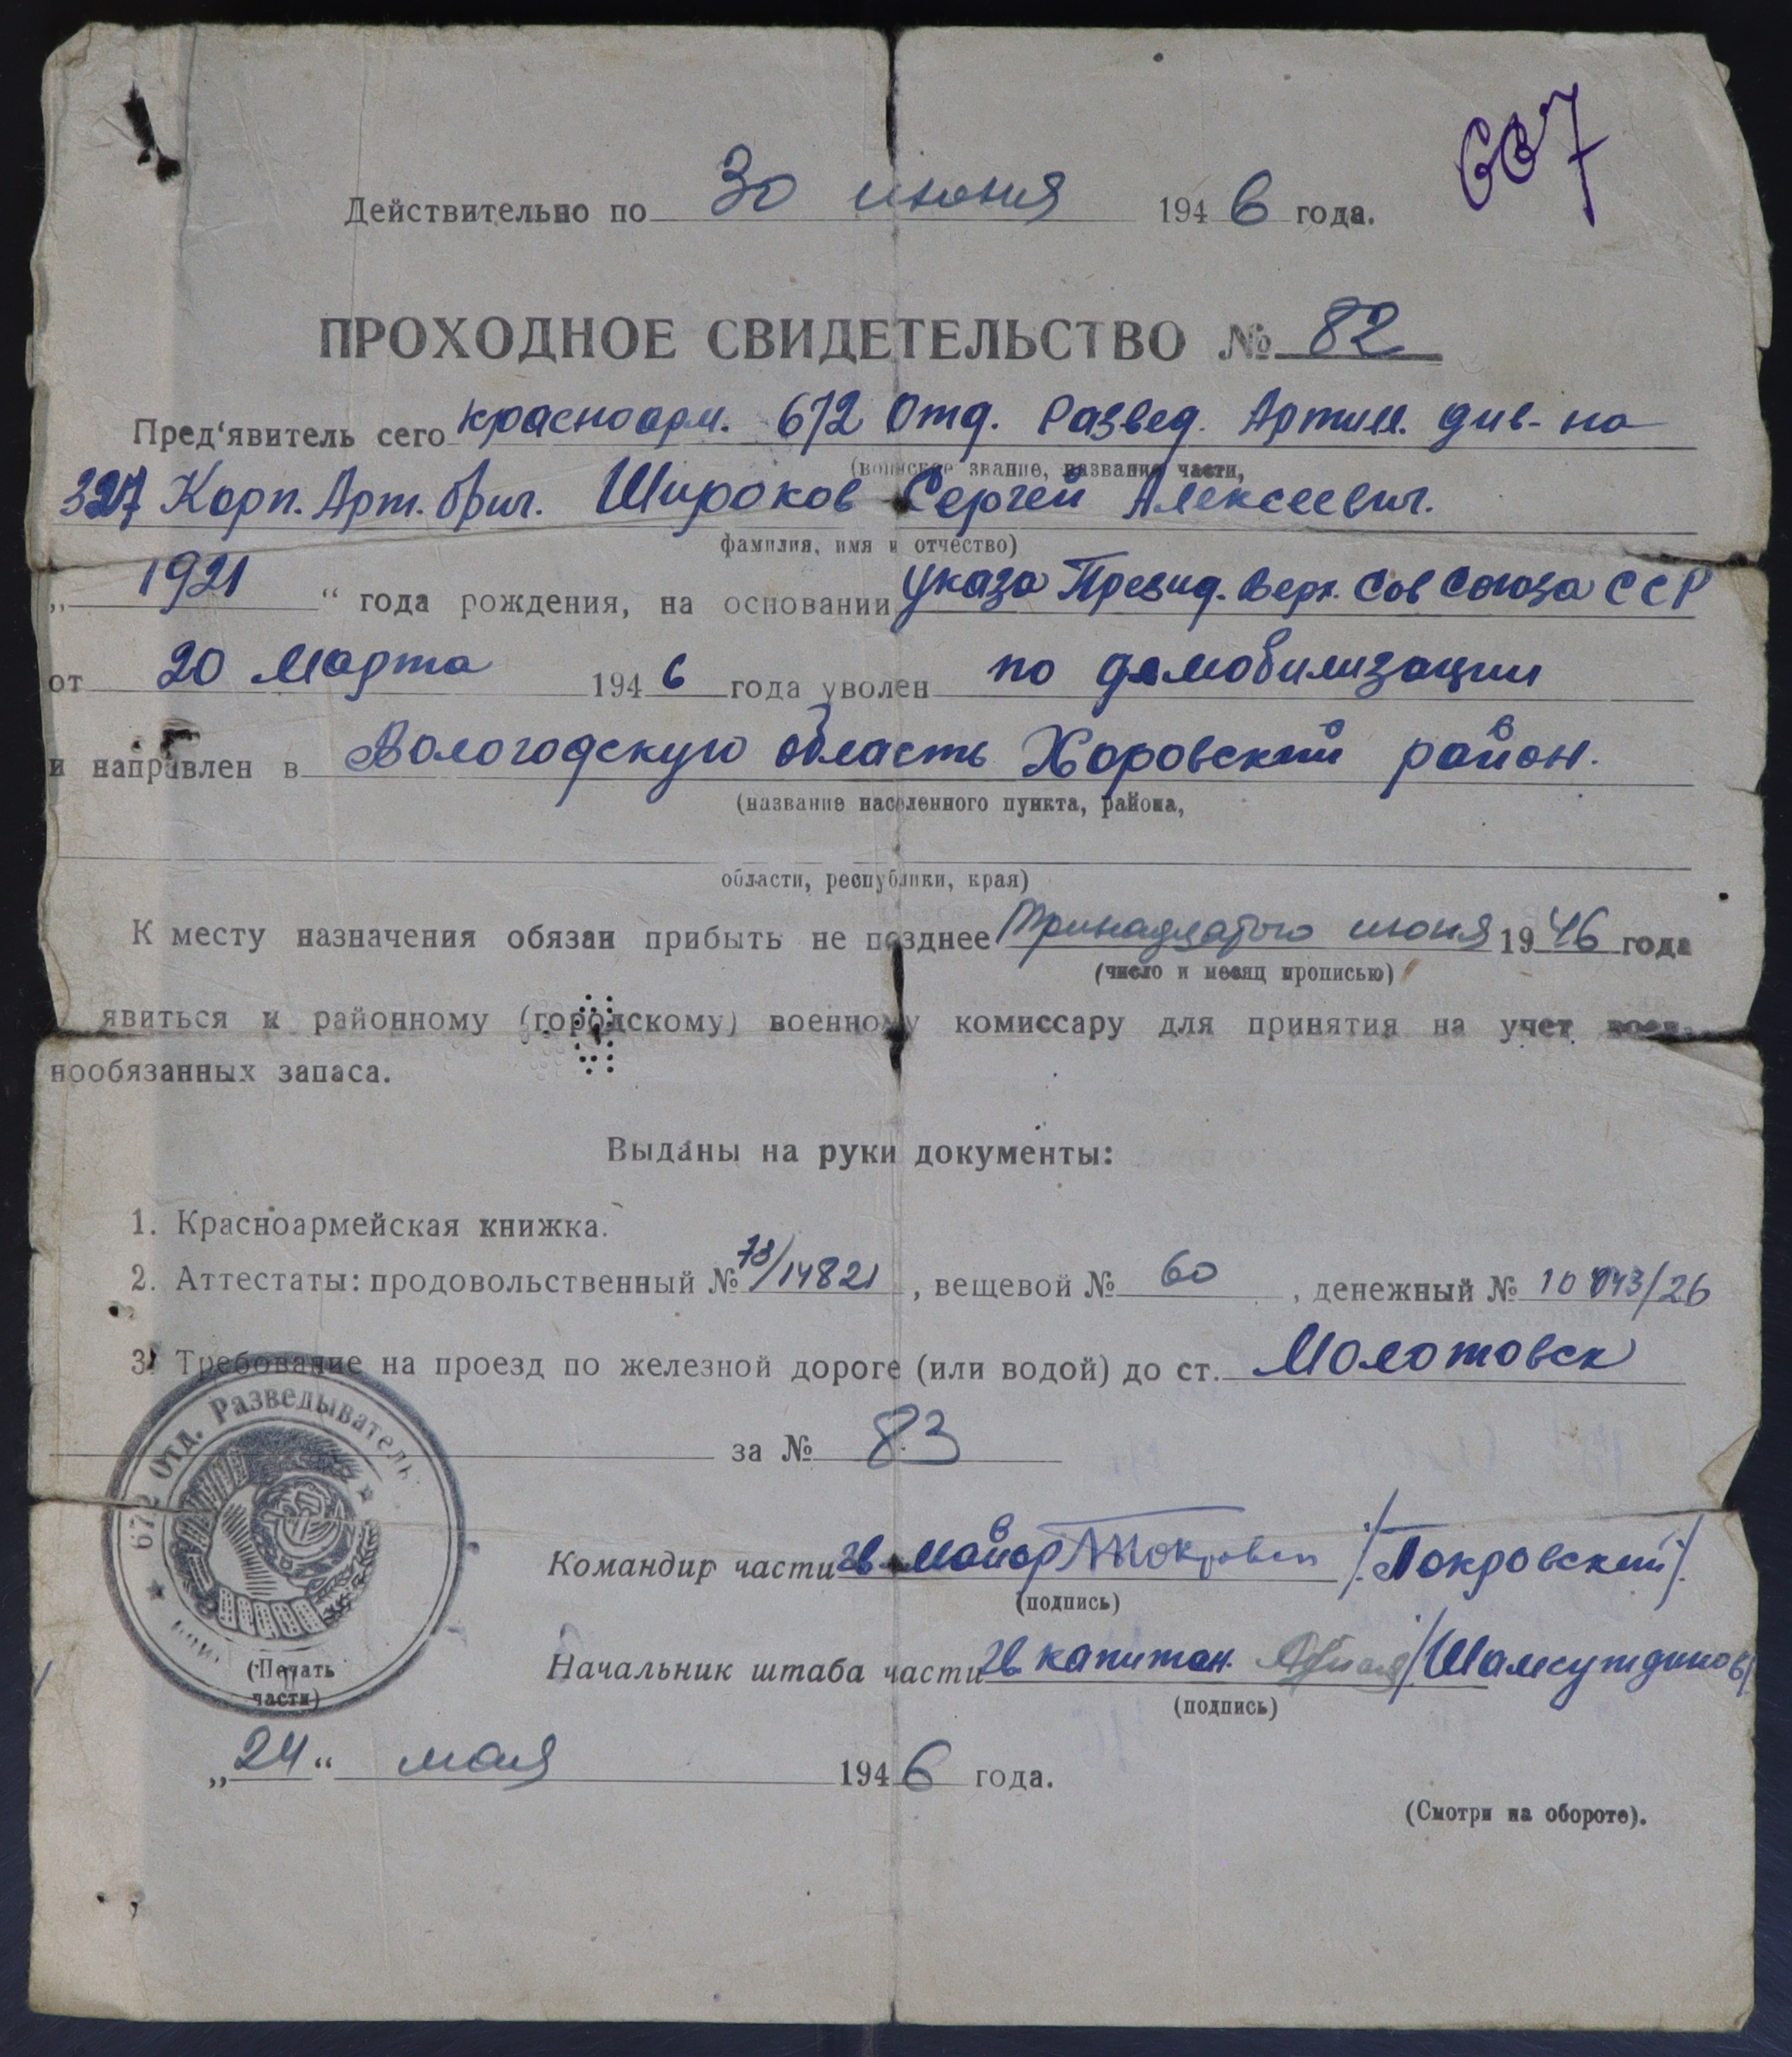 667
Действительно по 30 июня 1946 года.
ПРОХОДНОЕ СВИДЕТЕЛЬСТВО № 82
Пред'явитель сего красноарм. 672 Отд. Развед. Артил. див-на
(воинское звание, название части,
327 Корп. Арт. бриг. Широков Сергей Алексеевич.
фамилия, имя и отчество)
„ 1921 “ года рождения, на основании указа Презид. Верх. Сов Союза ССР
от 20 Марта 1946 года уволен по демобилизации
и направлен в Вологодскую область Харовский район.
(название населенного пункта, района,
области, республики, края)
К месту назначения обязан прибыть не позднее Тринадцатого июня 1946 года
(число и месяц прописью)
явиться к районному (городскому) военному комиссару для принятия на учет воен-
нообязанных запаса.
Выданы на руки документы:
1. Красноармейская книжка.
2. Аттестаты: продовольственный № 73/14821, вещевой № 60, денежный № 10043/26
3. Требование на проезд по железной дороге (или водой) до ст. Молотовск
за № 83
672 Отд. Разведыватель
Командир части гв. майор /Покровский/.
(подпись)
(Печать
части)
Начальник штаба части гв капитан. /Шамсутдинов/
(подпись)
„24“ мая 1946 года.
(Смотри на обороте).